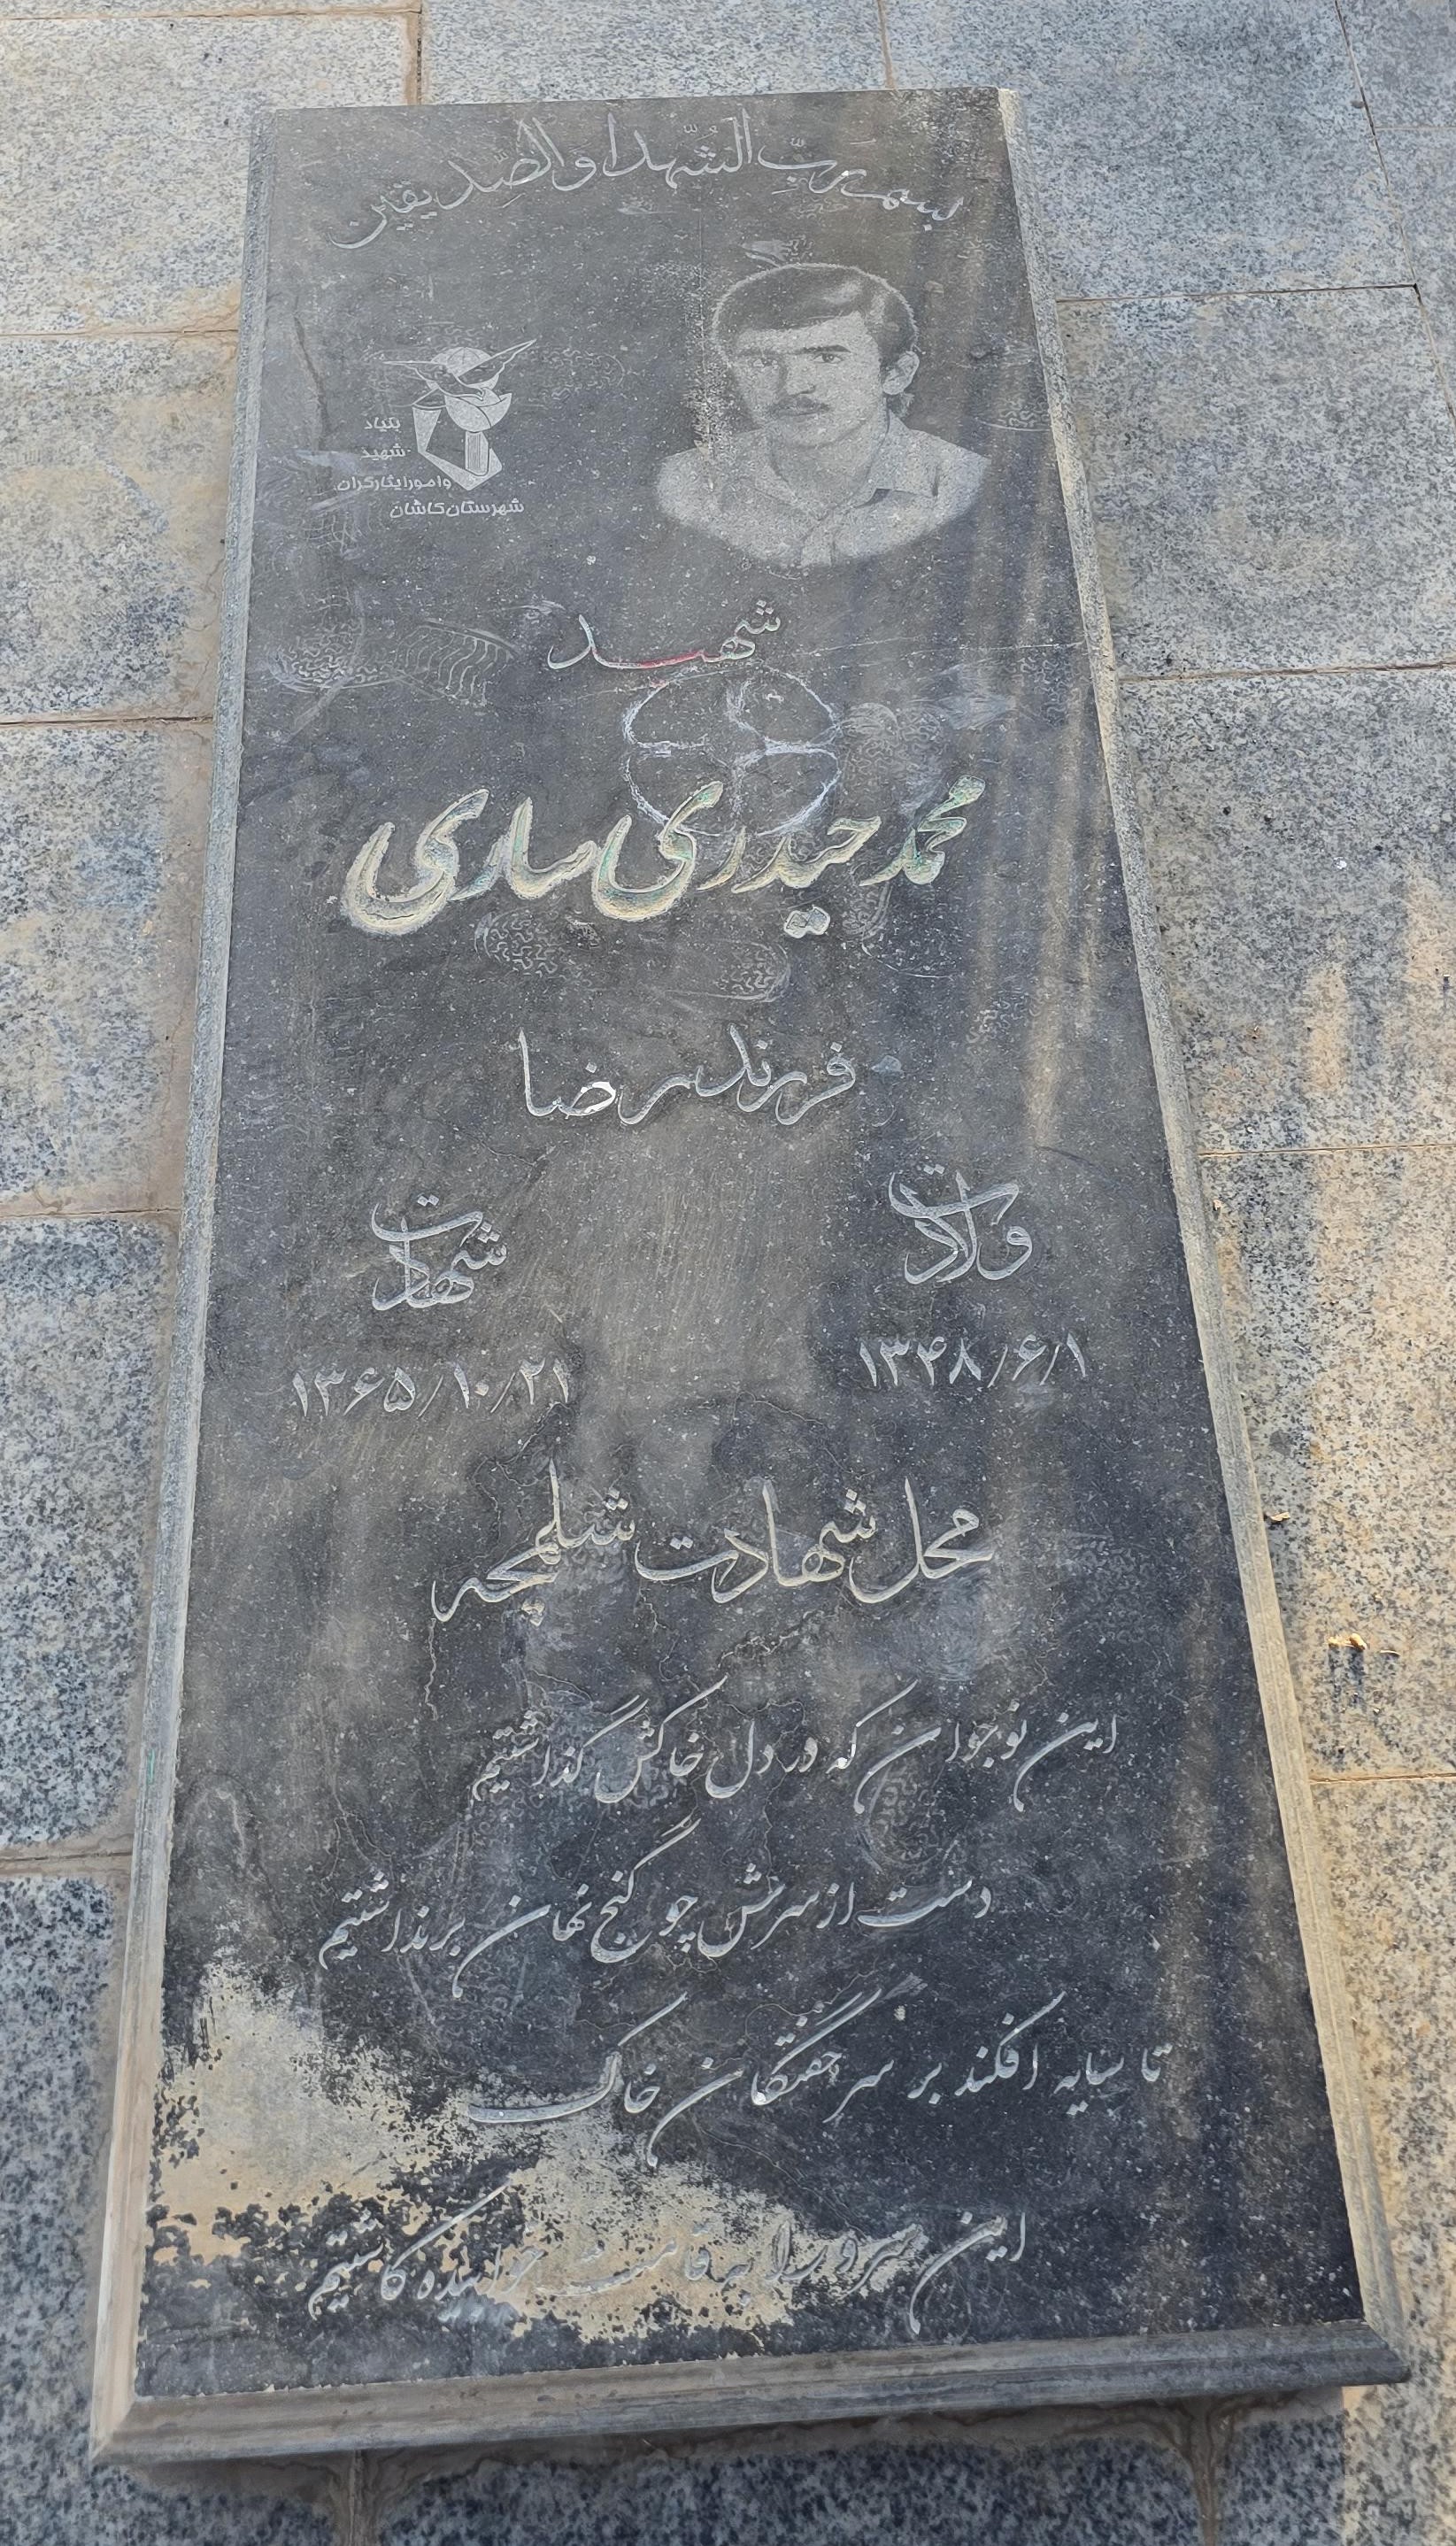 بسم رب الشهدا والصدیقین
بنیاد
شهید
وامورایثارگران
شهرستان کاشان
شهید
محمد حیدری ساری
فرزند رضا
ولادت
۱۳۴۸/۶/۱
شهادت
۱۳۶۵/۱۰/۲۱
محل شهادت شلمچه
این نوجوان که در دل خاکش گذاشتیم
دست از سرش چو گنج نهان برنداشتیم
تا سایه افکند بر سر خفتگان خاک
این سرو را به قامت خوابیده کاشتیم